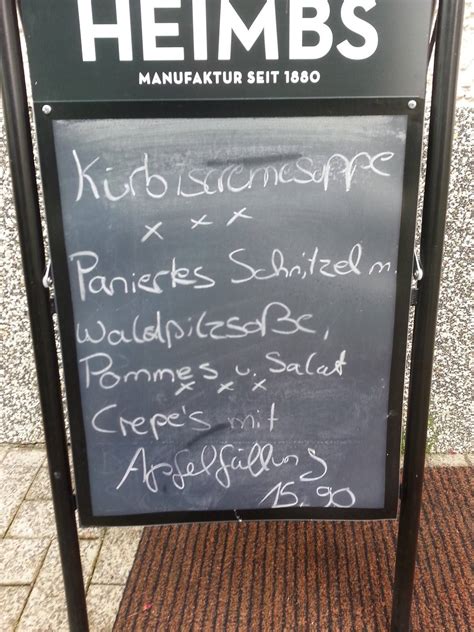 HEIMBS
MANUFAKTUR SEIT 1880
Kürbiscremesuppe
x x x
Paniertes Schnitzel m.
Waldpilzsoße,
Pommes u. Salat
x x x
Crepe's mit
Apfelfüllung
15,90